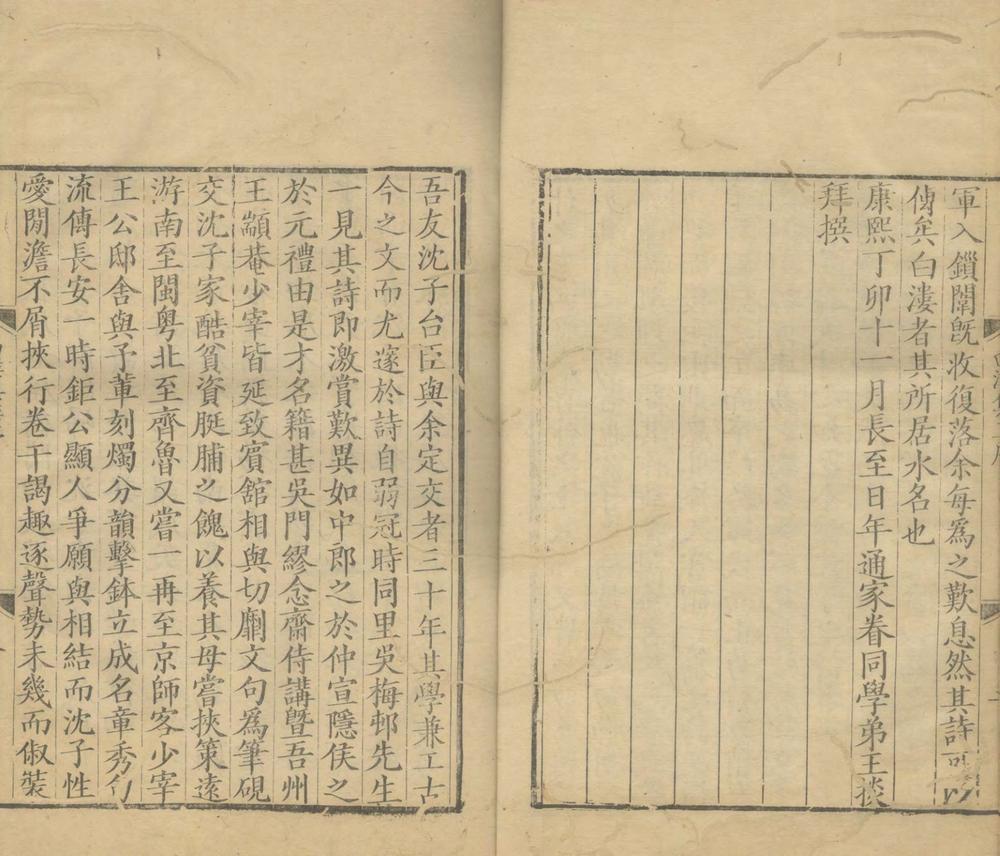 軍入鎖闈旣收復落余每爲之歎息然其詩可以
傳矣白漊者其所居水名也
康熙丁卯十一月長至日年通家眷同學弟王掞
拜撰
吾友沈子台臣與余定交者三十年其學兼工古
今之文而尤邃於詩自弱冠時同里吳梅邨先生
一見其詩即激賞歎異如中郎之於仲宣隱侯之
於元禮由是才名籍甚吳門繆念齋侍講曁吾州
王顓菴少宰皆延致賓館相與切劘文句爲筆硯
交沈子家酷貧資脡脯之餽以養其母嘗挾策遠
游南至閩粤北至齊魯又嘗一再至京師客少宰
王公邸舍與予輩刻燭分韻擊鉢立成名章秀句
流傳長安一時鉅公顯人爭願與相結而沈子性
愛閒澹不屑挾行卷干謁趣逐聲勢未幾而俶裝